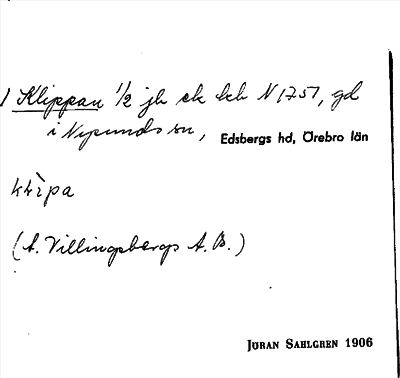 1 Klippan 1/2 jb sk bcb N 1751, gd
i Nysunds sn, Edsbergs hd, Örebro län
klìpa
(t. Villingsbergs A.B.)
JÖRAN SAHLGREN 1906